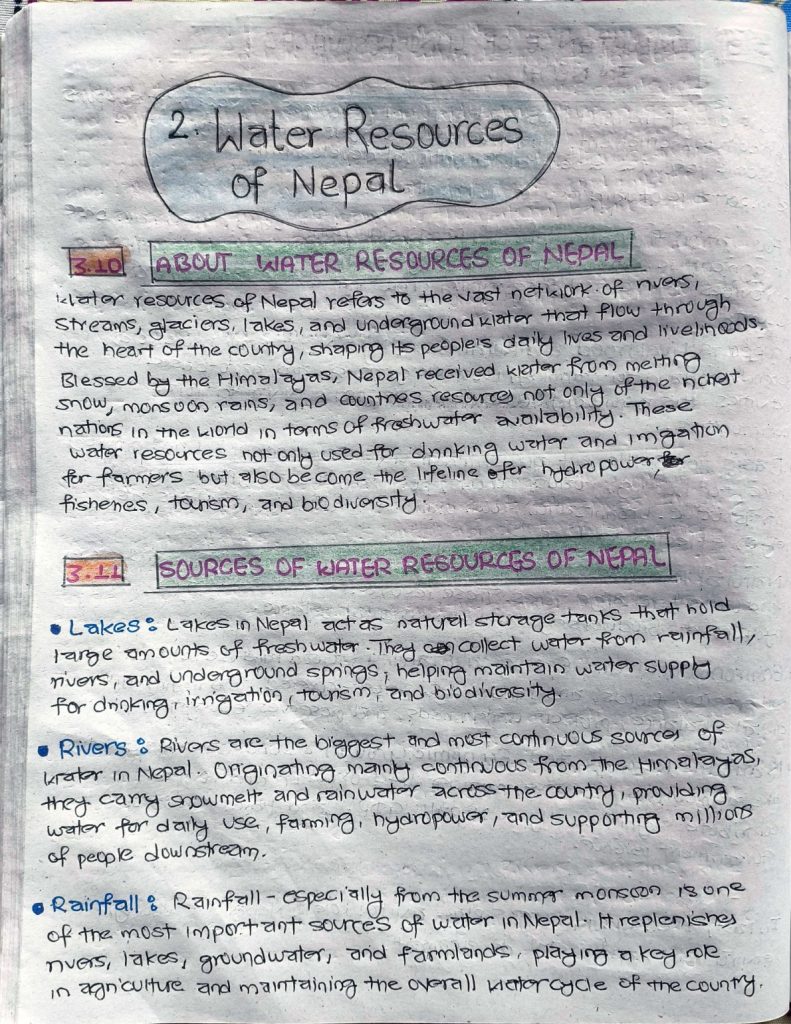 2. Water Resources
of Nepal
3.10 ABOUT WATER RESOURCES OF NEPAL
Water resources of Nepal refers to the vast network of rivers,
streams, glaciers, lakes, and underground water that flow through
the heart of the country, shaping its people's daily lives and livelihoods.
Blessed by the Himalayas, Nepal received water from melting
snow, monsoon rains, and countries resources not only of the richest
nations in the world in terms of freshwater availability. These
water resources not only used for drinking water and irrigation
for farmers but also become the lifeline ofer hydropower,
fisheries, tourism, and biodiversity.
3.11 SOURCES OF WATER RESOURCES OF NEPAL
• Lakes: Lakes in Nepal act as natural storage tanks that hold
large amounts of freshwater. They collect water from rainfall,
rivers, and underground springs, helping maintain water supply
for drinking, irrigation, tourism, and biodiversity.
• Rivers: Rivers are the biggest and most continuous sources of
water in Nepal. Originating mainly continuous from the Himalayas,
they carry snowmelt and rainwater across the country, providing
water for daily use, farming, hydropower, and supporting millions
of people downstream.
• Rainfall: Rainfall - especially from the summer monsoon is one
of the most important sources of water in Nepal. It replenishes
rivers, lakes, groundwater, and farmlands, playing a key role
in agriculture and maintaining the overall water cycle of the country.